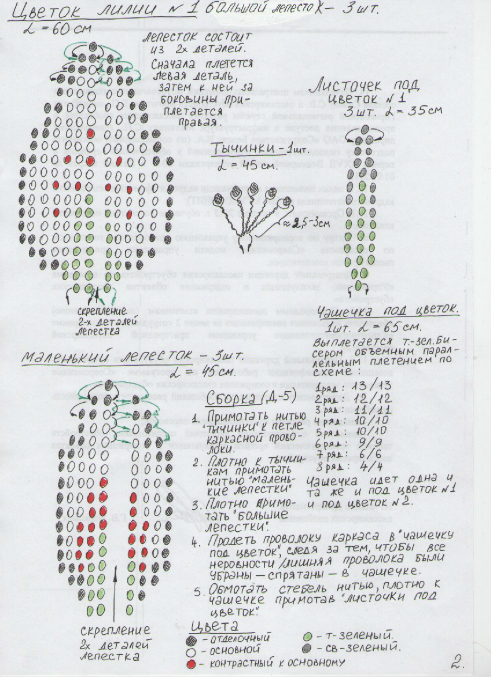 Цветок лилии №1 большой лепесток – 3 шт.
L = 60 см
Лепесток состоит
из 2х деталей.
Сначала плетется
левая деталь,
затем к ней за
боковины при-
плетается
правая.
Тычинки – 1 шт.
L = 45 см.
≈ 2,5-3 см
Листочек под
цветок №1
3 шт. L = 35 см
скрепление
2-х деталей
лепестка
Чашечка под цветок.
1 шт. L = 65 см.
Выплетается т-зел. би-
сером объемным парал-
лельным плетением по
схеме:
1 ряд: 13/13
2 ряд: 12/12
3 ряд: 11/11
4 ряд: 10/10
5 ряд: 10/10
6 ряд: 9/9
7 ряд: 6/6
3 ряд: 4/4
Чашечка идет одна и
та же и под цветок №1
и под цветок №2.
Маленький лепесток – 3 шт.
L = 45 см.
Сборка (Д-5)
1. Примотать нитью
"тычинки" к петле
каркасной прово-
локи.
2. Плотно к тычин-
кам примотать
нитью "малень-
кие лепестки"
3. Плотно примо-
тать "большие
лепестки".
4. Продеть проволоку каркаса в "чашечку
под цветок", следя за тем, чтобы все
неровности/лишняя проволока были
убраны – спрятаны – в чашечке.
5. Обмотать стебель нитью, плотно к
чашечке примотав "листочки под
цветок".
скрепление
2х деталей
лепестка
Цвета
- отделочный
- основной
- контрастный к основному
- т-зеленый.
- св-зеленый.
2.